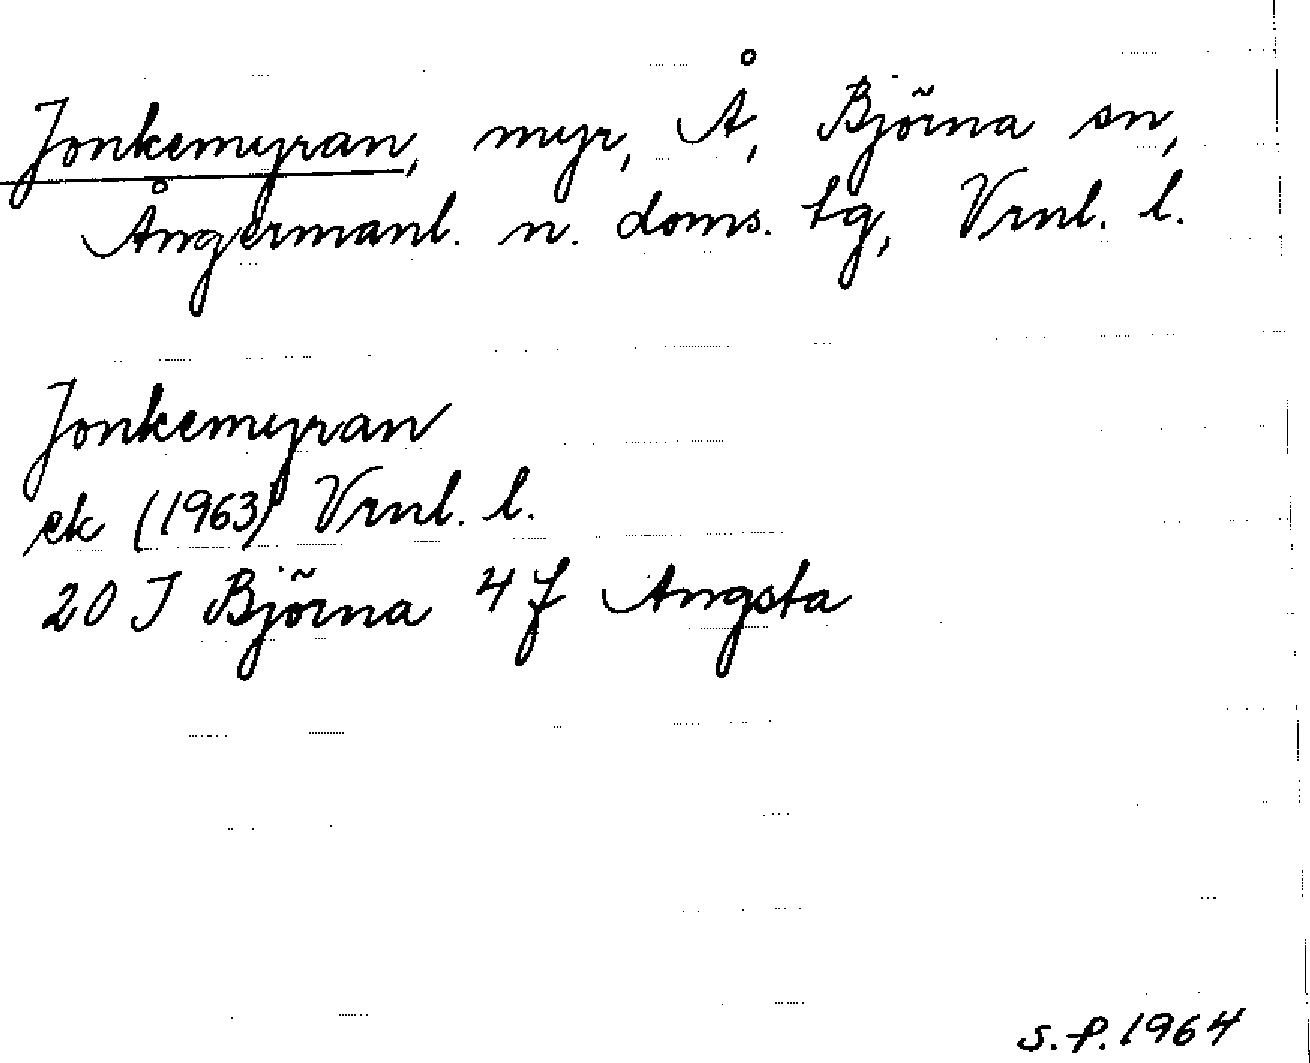 Jonkemyran, myr, Å, Björna sn,
Ångermanl. n. doms. tg, Vrnl. l.
Jonkemyran
ek (1963) Vrnl. l.
20 I Björna 4 f Angsta
S.P. 1964